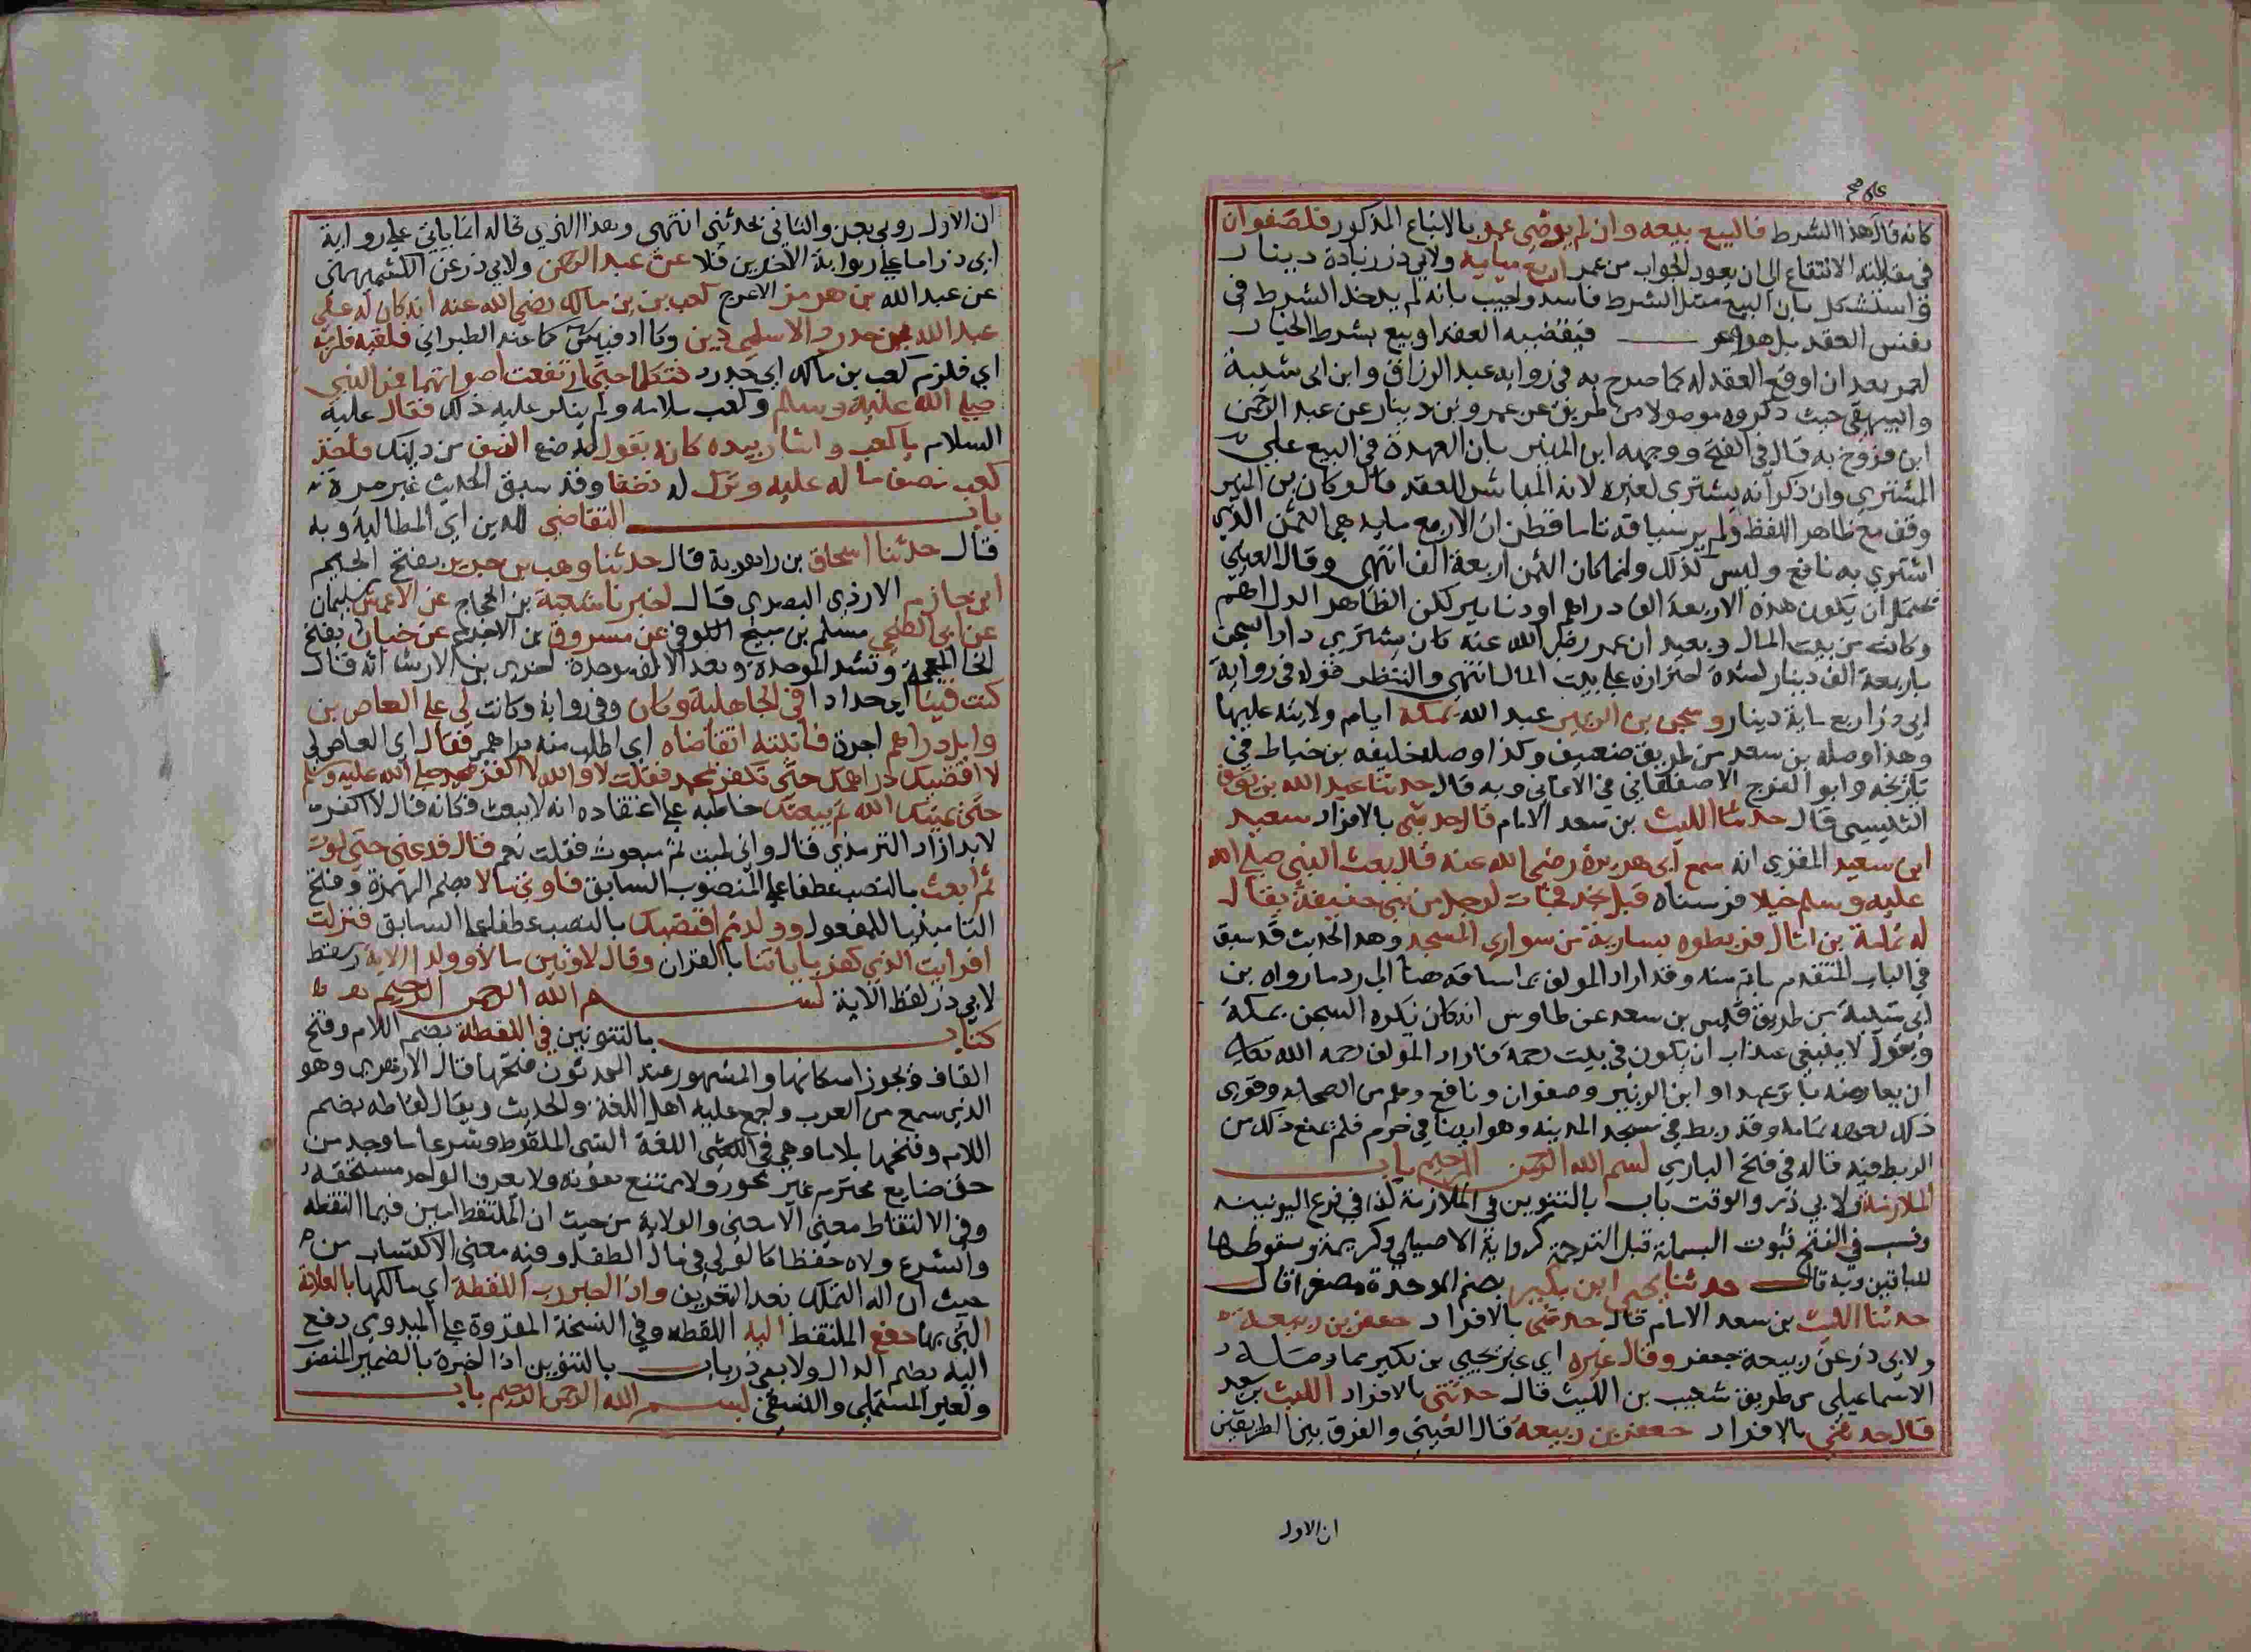 كانه قال هذا الشرط فالبيع بيعه وان لم يرضى عمر بالابتاع المذكور فلصفوان
في مقابلته الانتفاع الى ان يعود الجواب من عمر اربع ماية ولابي ذر زيادة دينار
واستشكل بان البيع مثل الشرط فاسد واجيب بانه لم يدخل الشرط في
نفس العقد بل هو وعد فيقتضيه العقد او بيع بشرط الخيار
لعمر بعد ان اوقع العقد له كما صرح به في رواية عبد الرزاق وابن ابى شيبة
والبيهقي حيث ذكروه موصولا من طريق عن عمرو بن دينار عن عبد الرحمن
ابن فروخ به قال في الفتح ووجهه ابن المنير بان العهدة في البيع على
المشتري وان ذكر انه يشترى لغيره لانه المباشر للعقد قال وكان بن المنير
وقف مع ظاهر اللفظ ولم ير سياقه تاما فظن ان الاربع ماية هي الثمن الذي
اشتري به نافع وليس كذلك وانما كان الثمن اربعة الف انتهى وقال العيني
يحتمل ان يكون هذه الاربعة الف دراهم او دنانير لكن الظاهر الدراهم
وكانت من بيت المال وبعيد ان عمر رضي الله عنه كان يشتري دار السجن
باربعة الف دينار لشدة احترازه على بيت المال انتهى والنتظر قوله في رواية
ابى ذر اربع ماية دينار وسجن بن الزبير عبد الله بمكة ايام ولايته عليها
وهذا وصله بن سعد من طريق ضعيف وكذا وصله خليفه بن خياط في
تاريخه وابو الفرج الاصفهاني في الاغاني وبه قال حدثنا عبد الله بن يوسف
التنيسي قال حدثنا الليث بن سعد الامام قال حدثني بالافراد سعيد
ابن سعيد المقري انه سمع ابى هريرة رضي الله عنه قال بعث النبي صلى الله
عليه وسلم خيلا فرسناه قبل نجد فجات لرجل من بني حنيفة يقال
له ثمامة بن اثال فربطوه بسارية من سواري المسجد وهذا الحديث قد سبق
في الباب المتقدم باتم منه وقد اراد المولف بما ساقه هنا الى رد ما رواه بن
ابى شيبة من طريق قيس بن سعد عن طاوس انه كان يكره السجن بمكة
ويقول لا ينبغي عذاب ان يكون في بيت رحمة فاراد المولف رحمه الله تعالى
ان يعارضه باثر عمر وابن الزبير وصفوان ونافع وهم من الصحابة وقوى
ذلك بقصة ثمامة وقد ربط في مسجد المدينة وهو ايضا في حرم فلم يمنع ذلك من
الربط فيه قاله في فتح الباري بسم الله الرحمن الرحيم باب
الملازمة ولابي ذر والوقت باب بالتنوين في الملازمة كذا في فرع اليونينية
ونسب في الفتح ثبوت البسملة قبل الترجمة كرواية الاصيلي وكريمة وسقوطها
للباقين وبه قال حدثنا يحيى ابن بكير بضم الموحدة مصغرا قال
حدثنا الليث بن سعد الامام قال حدثني بالافراد جعفر بن ربيعة
ولابى ذر عن ربيعة جعفر وقال غيره اي غير يحيي بن بكير مما وصله
الاسماعيلي من طريق شعيب بن الليث قال حدثني بالافراد الليث بن سعد
قال حدثني بالافراد جعفر بن ربيعة قال العيني والفرق بين الطريقين
ان الاول
ان الاول روي بعن والثاني بحدثني انتهى وهذا الذي قاله انما ياتي على رواية
ابى ذر اما على رواية الاخرين فلا عن عبد الرحمن ولابي ذر عن الكشميهني
عن عبد الله بن هرمز الاعرج كعب بن بن مالك رضي الله عنه انه كان له على
عبد الله بن حدرد الاسلمي دين وكان كما عند الطبراني فلقيه فلزمه
اي فلزم كعب بن مالك ابي حدرد فتكلما حتى ارتفعت اصواتهما فمر النبي
صلى الله عليه وسلم وكعب سلامه ولم ينكر عليه ذلك فقال عليه
السلام يا كعب واشار بيده كانه يقول له ضع النصف من دينك فاخذ
كعب نصف ما له عليه وترك له نصفا وقد سبق الحديث غير مرة
باب التقاضي للدين اي المطالبة وبه
قال حدثنا اسحاق بن راهوية قال حدثنا وهب بن جرير بفتح الجيم
ابن حازم الازدى البصرى قال اخبرنا شعبة بن الحجاج عن الاعمش سليمان
عن ابى الضحي مسلم بن صبيح الكوفى عن مسروق بن الاجدع عن خباب بفتح
الخا المعجمة وتشد الموحدة وبعد الالف موحدة اخرى بن الارت انه قال
كنت قينا اي حدادا في الجاهلية وكان وفي رواية وكانت لي على العاص بن
وايل دراهم اجرة فاتيته اتقاضاه اي اطلب منه دراهم فقال اي العاص لي
لا اقضيك دراهمك حتى تكفر بمحمد فقلت لا والله لا اكفر بمحمد صلى الله عليه وسلم
حتى يميتك الله ثم يبعثك خاطبه على اعتقاده انه لا يبعث فكانه قال لا اكفر
لابد ازاد الترمذي قال واني لميت ثم مبعوث فقلت نعم قال فدعني حتى اموت
ثم ابعث بالنصب عطفا على المنصوب السابق فاوتى مالا بضم الهمزة وفتح
التا مبنيا للمفعول وولد ثم اقضيك بالنصب عطفا على السابق فنزلت
افرايت الذي كفر باياتنا بالقران وقال لاوتين مالا وولدا الاية وسقط
لابي ذر لفظ الاية بسم الله الرحمن الرحيم
كتاب بالتنوين في اللقطة بضم اللام وفتح
القاف ويجوز اسكانها والمشهور عند المحدثون فتحها قال الازهري وهو
الذي سمع من العرب واجمع عليه اهل اللغة والحديث ويقال لقاطه بضم
اللام وفتحها بلاها وهي في اللغة الشي الملقوط وشرعا ما وجد من
حق ضايع محترم غير محرز ولا ممتنع بقوته ولا يعرف الواجد مستحقه
وفي الالتقاط معنى الامعنى والولاية من حيث ان الملتقط امين فيما التقطه
والشرع ولاه حفظه كالولي في مال الطفل وفيه معنى الاكتساب من
حيث ان له التملك بعد التعريف واذا اخبر رب اللقطة اي مالكها بالعلامة
التي بها دفع الملتقط اليه اللقطه وفي النسخة المقروة على الميدومي دفع
اليه بضم الدال ولابي ذر باب بالتنوين اذا اخبره بالضمير المنصو
ولغير المستملي والنسفي بسم الله الرحمن الرحيم باب